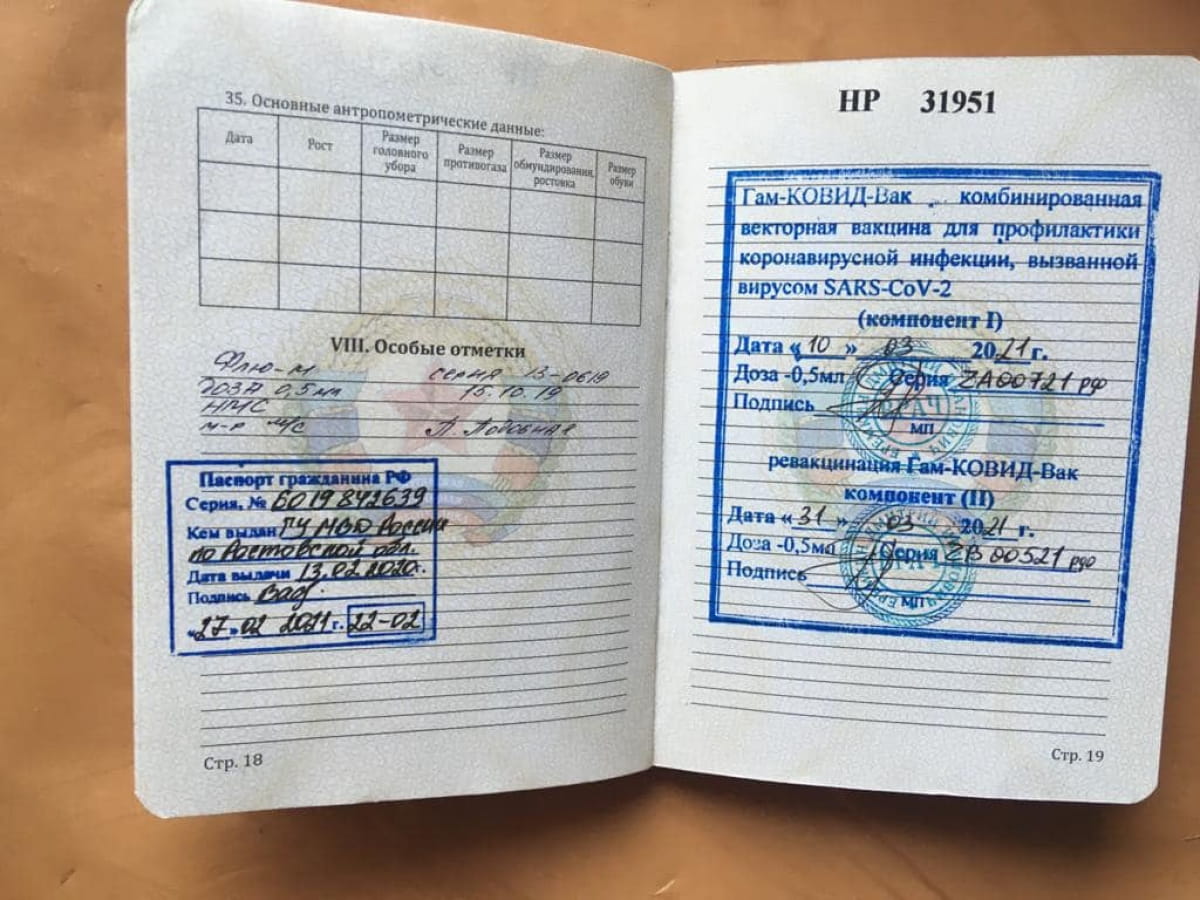 35. Основные антропометрические данные:
Дата
Рост
Размер головного убора
Размер противогаза
Размер обмундирования, ростовка
Размер обуви
VIII. Особые отметки
Флю-М серия 13-0619
доза 0,5 мл 15.10.19
НМС
м-р м/с
Паспорт гражданина РФ
Серия, № 6019 842639
Кем выдан ГУ МВД России
по Ростовской обл.
Дата выдачи 13.02.2020г.
Подпись
«27» 02 2021г. 22-02
Стр. 18
НР 31951
Гам-КОВИД-Вак комбинированная
векторная вакцина для профилактики
коронавирусной инфекции, вызванной
вирусом SARS-CoV-2
(компонент I)
Дата «10» 03 2021 г.
Доза -0,5мл Серия ZA00721 РФ
Подпись
ВРАЧ
МП
ревакцинация Гам-КОВИД-Вак
компонент (II)
Дата «31» 03 2021 г.
Доза -0,5мл Серия ZB00521 РФ
Подпись
ВРАЧ
МП
Стр. 19